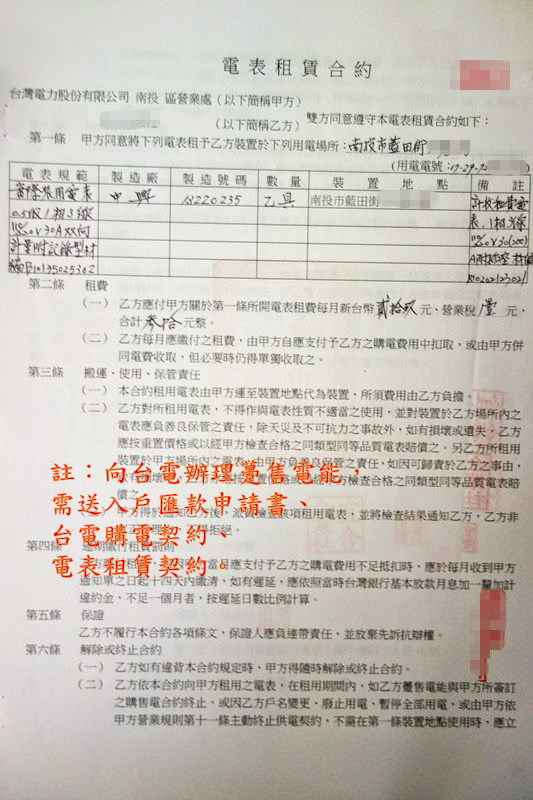 電表租賃合約
台灣電力股份有限公司 南投 區營業處(以下簡稱甲方)
(以下簡稱乙方) 雙方同意遵守本電表租賃合約如下:
第一條 甲方同意將下列電表租予乙方裝置於下列用電場所:南投市藍田街
(用電電號:17-29-
電表規範 製造廠 製造號碼 數量 裝置地點 備註
中興 乙具 南投市藍田街
0.5級1相3線
第二條 租費
(一) 乙方應付甲方關於第一條所開電表租費每月新台幣貳拾玖元,營業稅壹元,
合計參拾元整。
(二) 乙方每月應繳付之租費,由甲方自應支付予乙方之購電費用中扣取,或由甲方併
同電費收取,但必要時仍得單獨收取之。
第三條 搬運、使用、保管責任
(一) 本合約租用電表由甲方運至裝置地點代為裝置,所須費用由乙方負擔。
(二) 乙方對所租用電表,不得作與電表性質不適當之使用,並對裝置於乙方場所內之
電表應負善良保管之責任,除天災及不可抗力之事故外,如有損壞或遺失,乙方
應按重置價格或以經甲方檢查合格之同類型同等品質電表賠償之。另乙方所租用
裝置於甲方場所內之電表,由甲方負善良保管之責任,如因可歸責於乙方之事由,
檢查合格之同類型同等品質電表賠
償之。
註:向台電辦理躉售電能,
需送入戶匯款申請書、
台電購電契約、
電表租賃契約。
派員檢查該項租用電表,並將檢查結果通知乙方、乙方非
第四條 逾期繳付租費罰則
當月應支付予乙方之購電費用不足抵扣時,應於每月收到甲方
通知單之日起十四天內繳清,如有遲延,應依照當時台灣銀行基本放款月息加一釐加計
違約金,不足一個月者,按遲延日數比例計算。
第五條 保證
乙方不履行本合約各項條文,保證人應負連帶責任,並放棄先訴抗辯權。
第六條 解除或終止合約
(一) 乙方如有違背本合約規定時,甲方得隨時解除或終止合約。
(二) 乙方依本合約向甲方租用之電表,在租用期間內,如乙方躉售電能與甲方所簽訂
之購售電合約終止,或因乙方戶名變更、廢止用電、暫停全部用電,或由甲方依
甲方營業規則第十一條主動終止供電契約,不需在第一條裝置地點使用時,應立